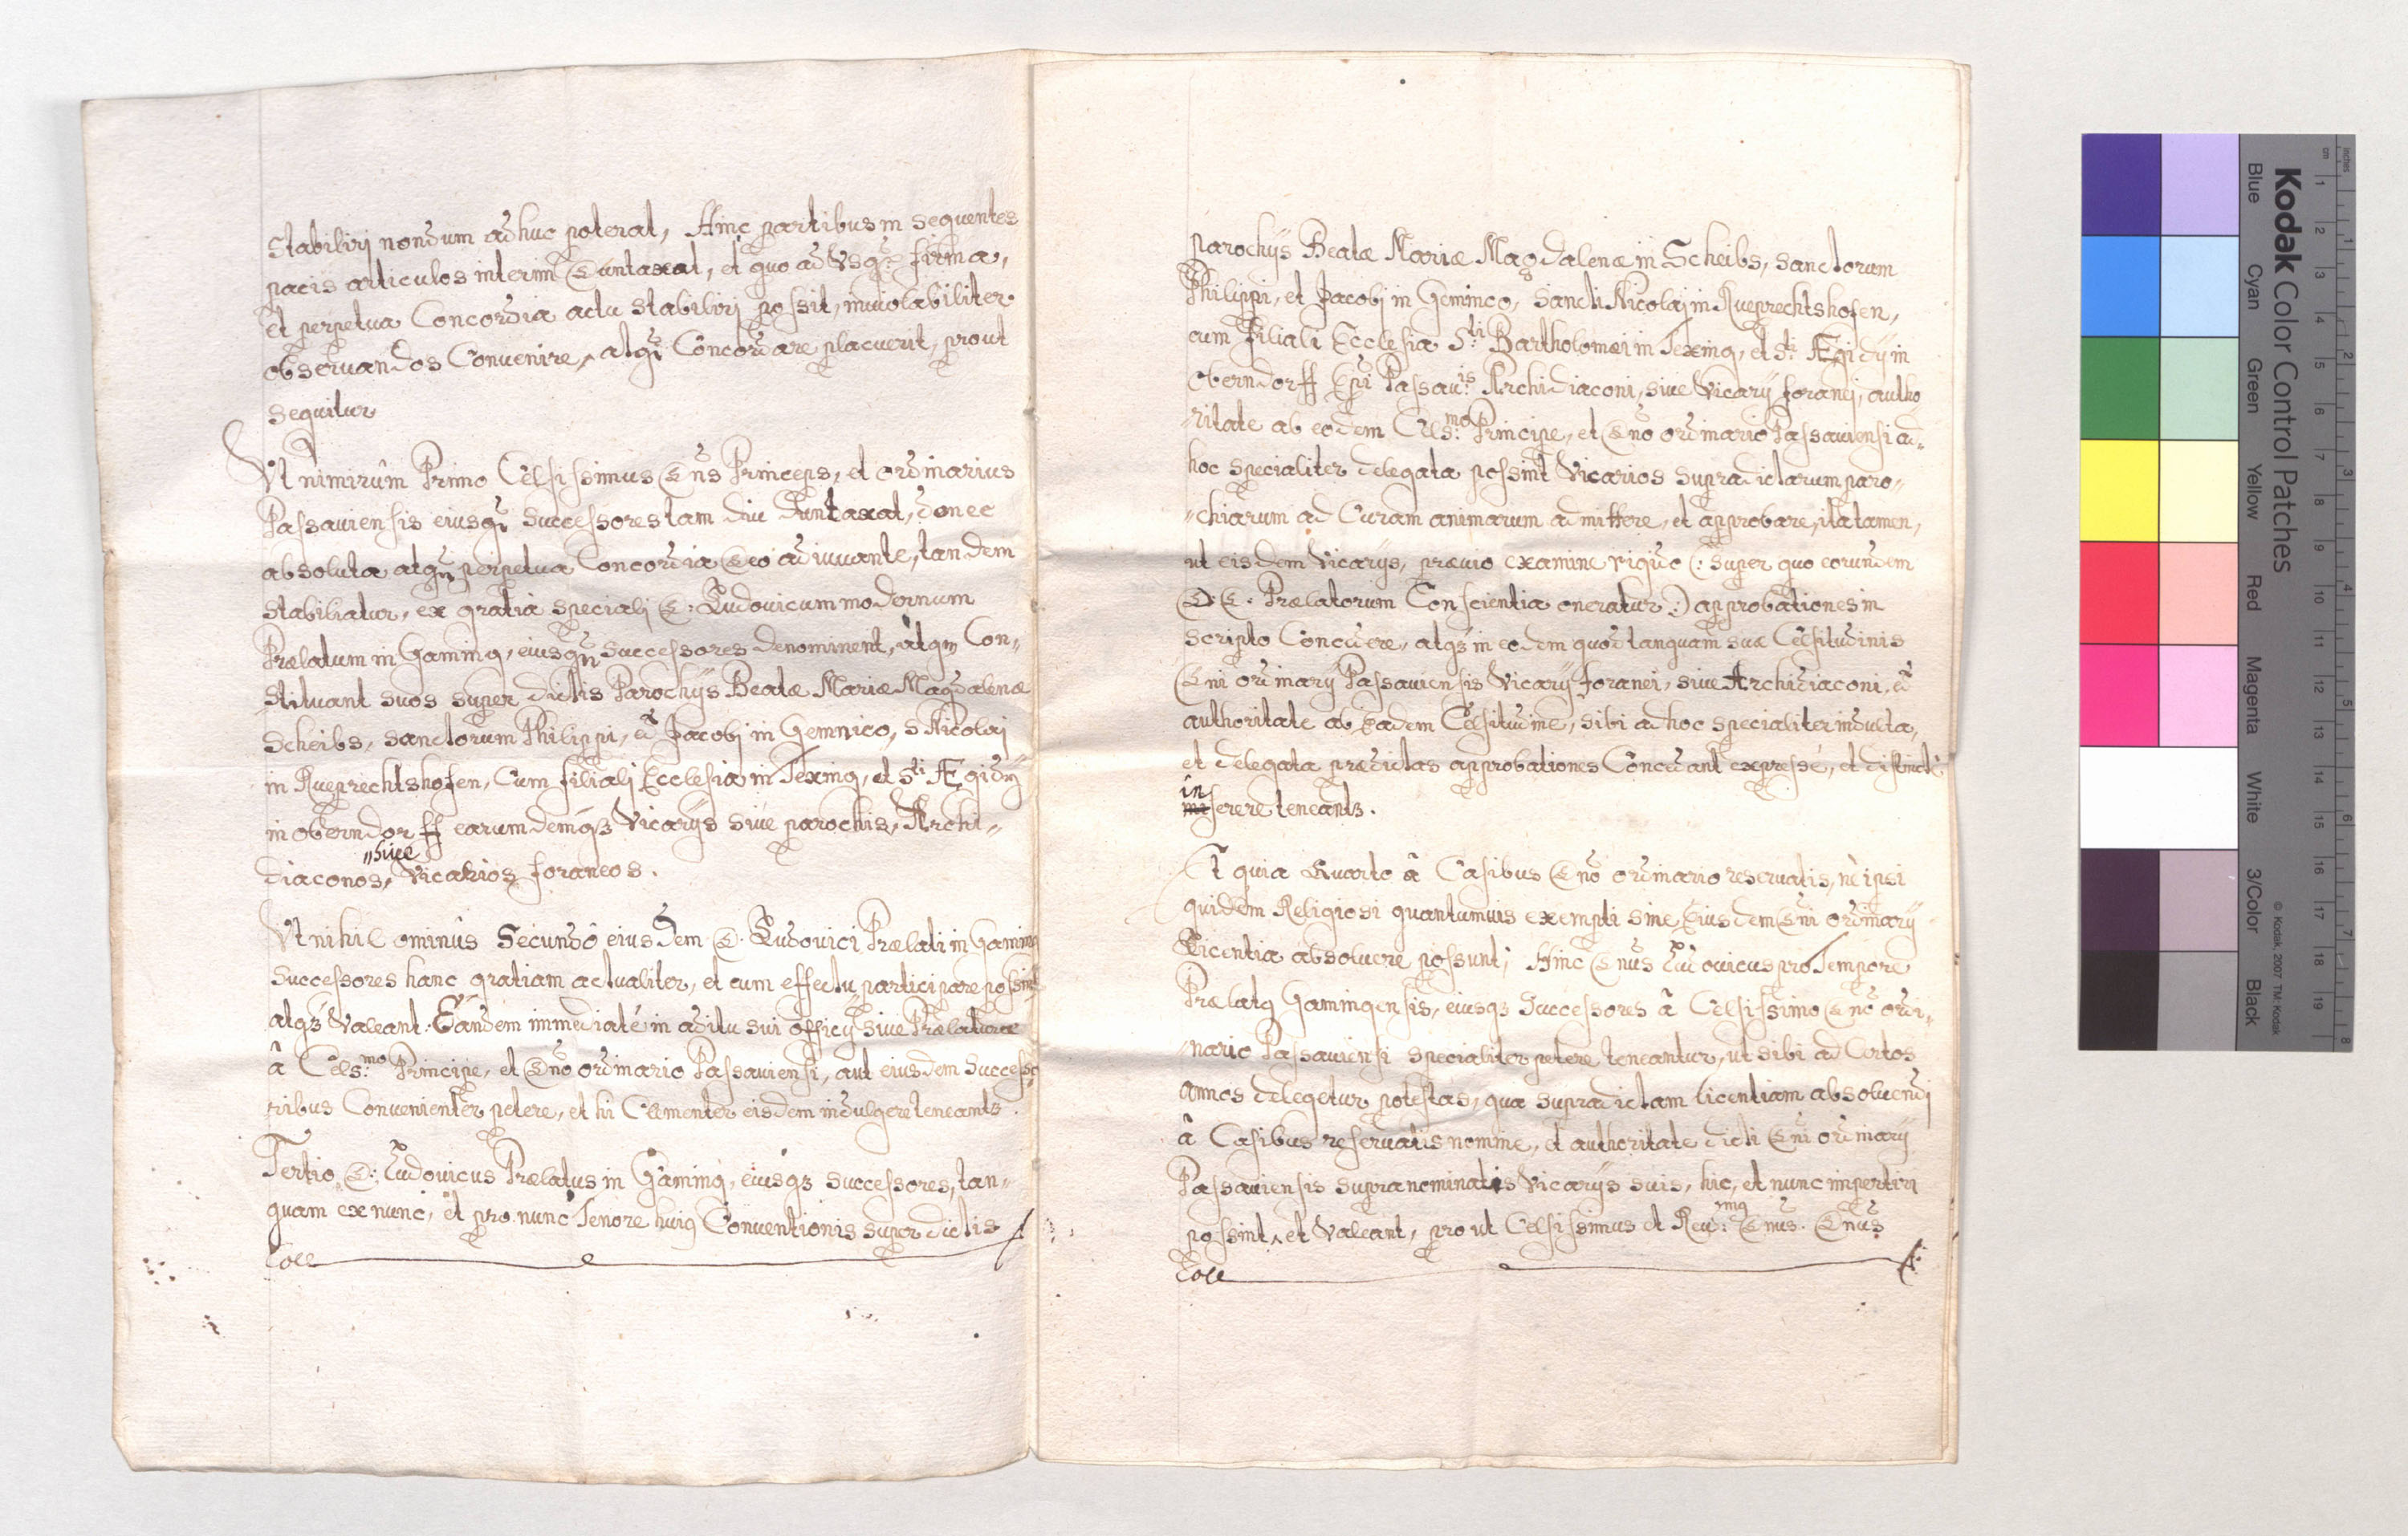 Stabilirj nondum adhuc poterat, Hinc partibus in sequentes
pacis articulos interim Duntaxat, et quo ad Vsq: firma,
et perpetua Concordia actu stabilirj possit, inviolabiliter
observandos Convenire, atq; Concordare placuerit, prout
sequitur
Vt nimirûm Primo Celsissimus Dns Princeps, et ordinarius
Passauiensis eiusq; Successores tam diu duntaxat, donec
absoluta atq; perpetua Concordia Deo adiuvante, tandem
stabiliatur, ex gratia specialj D: Ludovicum modernum
Prælatum in Gaming, eiusq; successores denominent, atq; Con„
stituant suos super dictis Parochijs Beatæ Mariæ Magdalenæ
Scheibs, sanctorum Philippi, et Jacobj in Gemnico, S Nicolaj
in Rueprechtshofen, Cum filialj Ecclesia in Texing, et Sti Ægidÿ
in oberndorff earumdemq3 Vicarijs sive parochis, Archi„
diaconos, „sive Vicarios foraneos.
Vt nihil ominûs Secundô eiusdem D. Ludovici Prælati in Gaming
Successores hanc gratiam actualiter, et cum effectu participare possint
atq3 Valeant. Eandem immediaté in aditu sui officÿ sive Prælaturæ
â Cels:mo Principe, et Dno ordinario Passaviensi, aut eiusdem Successo
ribus Convenienter petere, et hi Clementer eisdem indulgere teneant3.
Tertio D: Ludovicus Prælatus in Gaming, eiusq3 successores, tan„
quam ex nunc, et pro nunc Tenore huig Conventionis super dictis
Coll
parochijs Beatæ Mariæ Magdalenæ in Scheibs, sanctorum
Philippi, et Jacobj in Geminco, Sancti Nicolaj in Rueprechtshofen,
cum filiali Ecclesia S:ti Bartholomæi in Texing, et S:ti Ægidÿ in
Oberndorff Epi Passav:is Archidiaconi, sive Vicarÿ foranej, autho
„ritate ab eodem Cels:mo Principe, et Dno ordinario Passaviensi ad„
hoc specialiter delegata possint Vicarios supradictarum paro„
„chiarum ad Curam animarum admittere, et approbare, ita tamen,
ut eisdem Vicarijs, prævio examine rigido (: super quo eorundem
D: D. Prælatorum Conscientia oneratur :) approbationes in
scripto Concedere, atq3 in eodem quod tanquam suæ Celsitudinis
Dni ordinarÿ Passaviensis Vicarÿ foranei, sive Archidiaconi, et
authoritate ab Eadem Celsitudine, sibi ad hoc specialiter indulta,
et delegata prædictas approbationes Concedant expressé, et distincté
inserere teneant3.
Et quia Quarto â Casibus Dno ordinario reservatis, nè ipsi
quidem Religiosi quantumvis exempti sine Eiusdem Dni ordinarÿ
Licentia absolvere possunt; Hinc Dnus Ludovicus pro Tempore
Prælatg Gamingensis, eiusq3 Successores â Celsissimo Dno ordi„
„nario Passaviensi specialiter petere teneantur, ut sibi ad Certos
annos delegetur potestas, qua supradictam licentiam absolvendj
â Casibus reservatis nomine, et authoritate dicti Dni ordinarÿ
Passaviensis supranominatis Vicarÿs suis, hic, et nunc impertiri
possint, et Valeant, prout Celsissimus et Rev:mg Dnus. Dnus
Coll